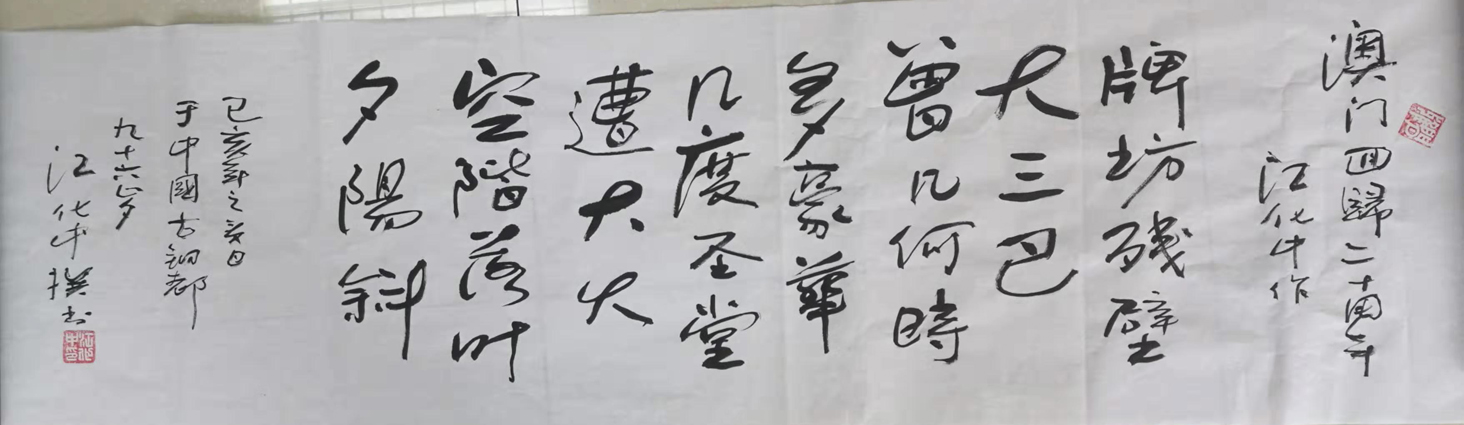 澳门回歸二十周年
江化中作
牌坊残壁
大三巴
曾几何時
多豪華
几度圣堂
遭大火
空階落叶
夕陽斜
己亥年之
于中國古銅都
九十六岁
江化中撰书